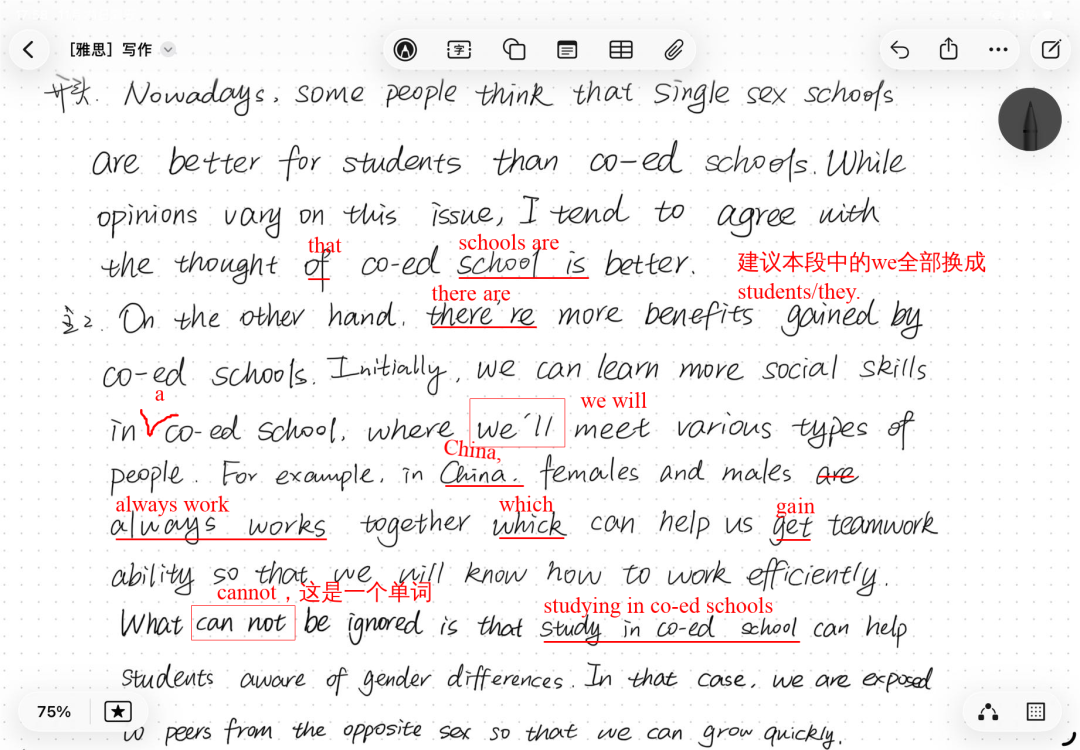 [雅思] 写作
字
开头. Nowadays, some people think that single sex schools
are better for students than co-ed schools. While
opinions vary on this issue, I tend to agree with
that schools are
the thought of co-ed school is better. 建议本段中的we全部换成
there are students/they.
主2. On the other hand, there're more benefits gained by
co-ed schools. Initially, we can learn more social skills
a we will
in co-ed school, where we'll meet various types of
China,
people. For example, in China. females and males are
always work which gain
always works together which can help us get teamwork
ability so that we will know how to work efficiently.
cannot，这是一个单词 studying in co-ed schools
What can not be ignored is that study in co-ed school can help
students aware of gender differences. In that case, we are exposed
75%
to peers from the opposite sex so that we can grow quickly.